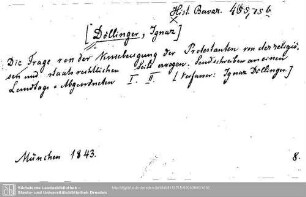 Hist. Bavar. 485,756
[Döllinger, Ignaz]
Die Frage von der Kniebeugung der Protestanten von der religiö-
sen und staatsrechtlichen Seite erwogen. Sendschreiben an einen
Landtags-Abgeordneten I. II. [Verfasser: Ignaz Döllinger.]
München 1843. 8.
Sächsische Landesbibliothek -
Staats- und Universitätsbibliothek Dresden